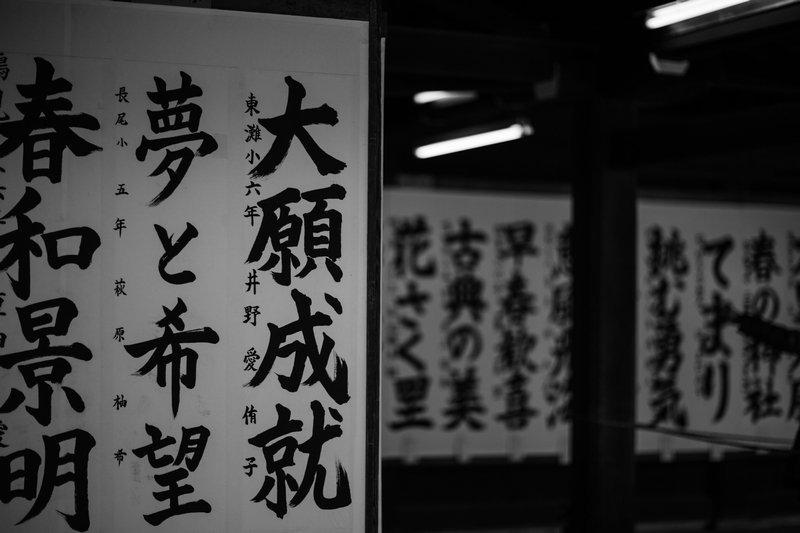 大願成就
東灘小六年 井野愛侑子
夢と希望
長尾小 五年 荻原柚希
春和景明
花さく里
古典の美
早春歓喜
挑む勇気
てまり
春の神社